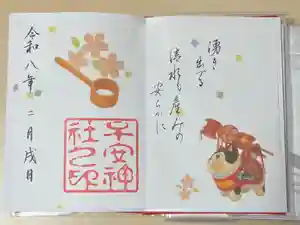 湧き
出づる
清水も産みの
安らかに
令和八年 二月戌日
子安神
社之印